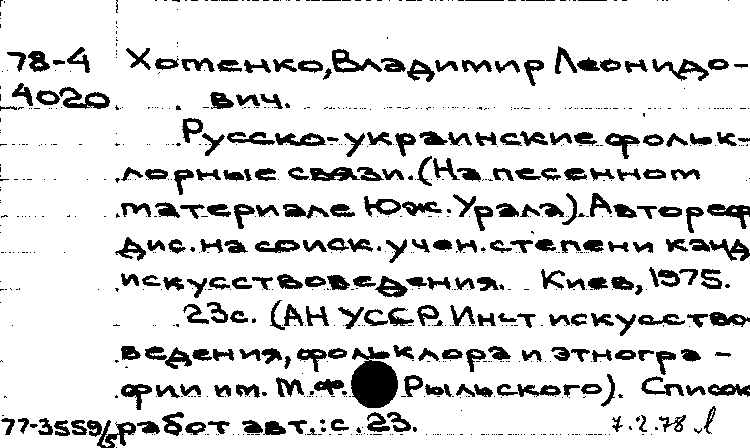 78-4 Хотенко, Владимир Леонидо-
4020 вич.
Русско-украинские фольк-
лорные связи. (На песенном
материале Юж. Урала). Автореф
дис. на соиск. учен. степени канд
искусствоведения. Киев, 1975.
23с. (АН УССР. Ин-т искусство-
ведения, фольклора и этногра-
фии им. М.Ф. Рыльского). Список
77-3559/5 работ авт.: с. 23. 7.2.78